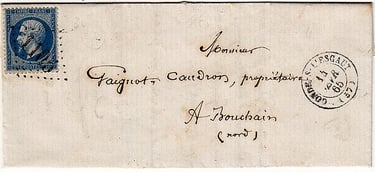 Monsieur
Taignot-Caudron, propriétaire
A Bouchain
(nord)
CONDÉ-S-L'ESCAUT (57)
65